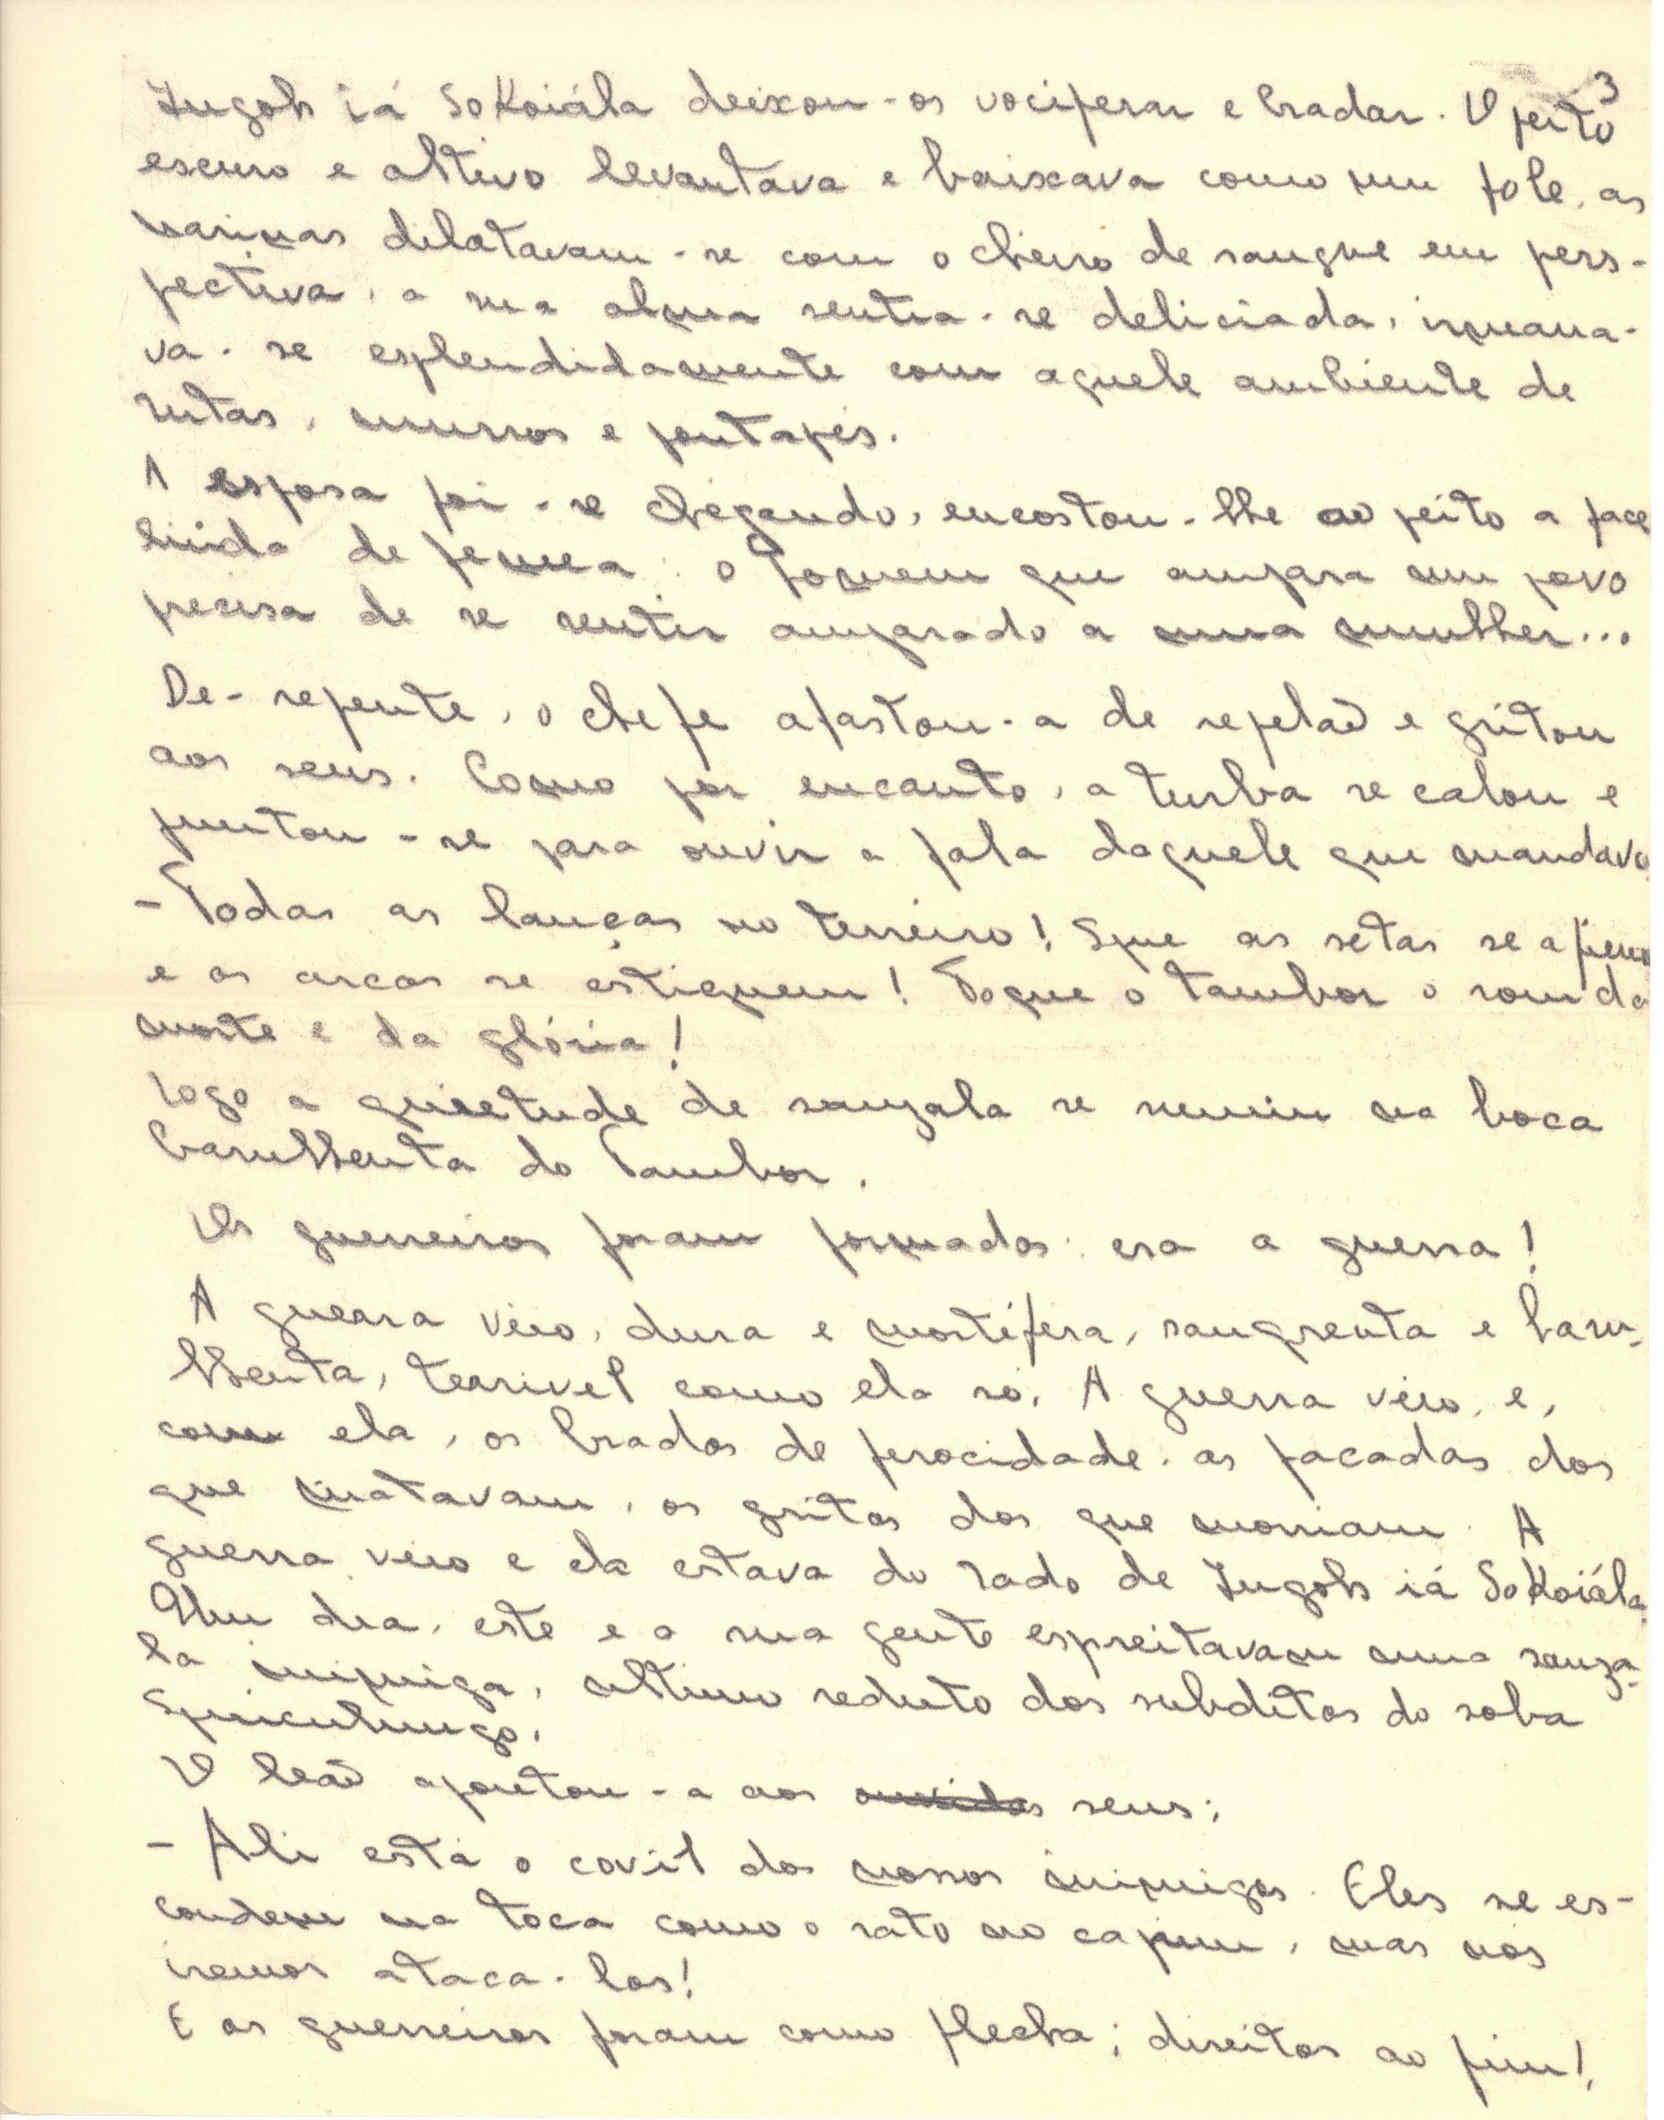 3
Jugoh iá SoKoiála deixou-os vociferar e bradar. O peito
escuro e altivo levantava e baixava como um fole, as
narinas dilatavam-se com o cheiro de sangue em pers-
pectiva, a sua alma sentia-se deliciada, irmana-
va-se esplendidamente com aquele ambiente de
lutas, murros e pontapés.
A esposa foi-se chegando, encostou-lhe ao peito a face
luzida de femea: o homem que ampara um povo
precisa de se sentir amparado a uma mulher...
De-repente, o chefe afastou-a de repelão e gritou
aos seus. Como por encanto, a turba se calou e
juntou-se para ouvir a fala daquele que mandava.
- Todas as lanças no terreiro! Que as setas se afiem
e os arcos se estiquem! Toque o tambor o som da
morte e da glória!
Logo a quietude de sanzala se sumiu na boca
barulhenta do Tambor.
Os guerreiros foram formados: era a guerra!
A guerra veio, dura e mortífera, sangrenta e baru-
lhenta, terrivel como ela só. A guerra veio, e,
com ela, os brados de ferocidade, as facadas dos
que matavam, os gritos dos que morriam. A
guerra veio e ela estava do lado de Jugoh iá SoKoiála.
Um dia, este e a sua gente espreitavam uma sanza-
la inimiga, ultimo reduto dos subditos do soba
Quiculungo.
O leão apontou-a aos ouvidos seus:
- Ali está o covil dos nossos inimigos. Eles se es-
condem na toca como o rato no capim, mas nós
iremos ataca-los!
E os guerreiros foram como flecha; direitos ao fim!